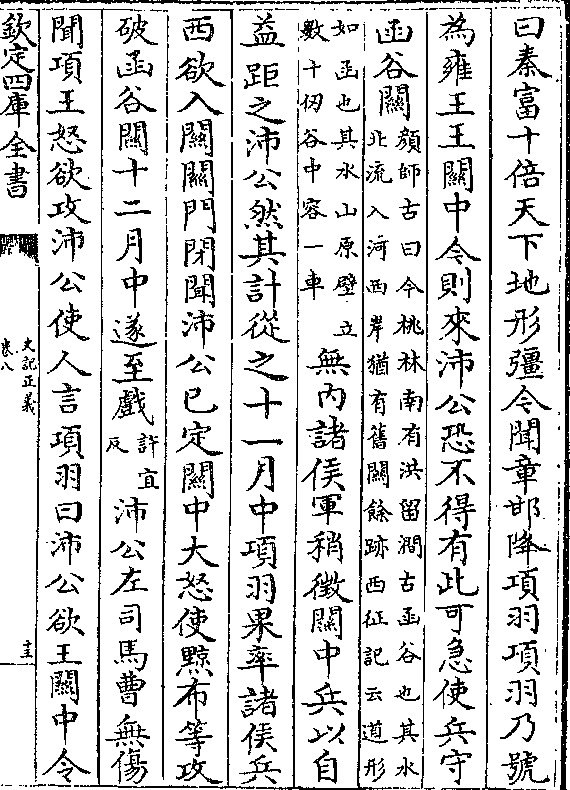 曰秦富十倍天下地形彊今聞章邯降項羽項羽乃號
為雍王王關中今則來沛公恐不得有此可急使兵守
函谷關顔師古曰今桃林南有洪留澗古函谷也其水
北流入河西岸猶有舊關餘跡西征記云道形
如函也其水山原壁立
數十仞谷中容一車無内諸侯軍稍徵關中兵以自
益距之沛公然其計從之十一月中項羽果率諸侯兵
西欲入關關門閉聞沛公已定關中大怒使黥布等攻
破函谷關十二月中遂至戲許宜反沛公左司馬曹無傷
聞項王怒欲攻沛公使人言項羽曰沛公欲王關中令
欽定四庫全書
史記正義
卷八